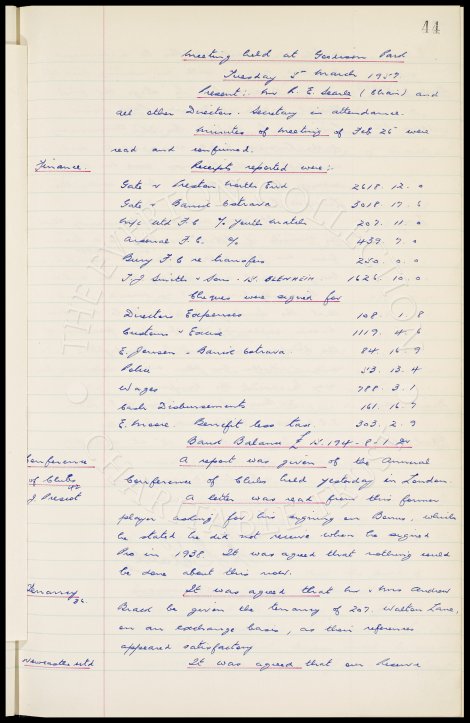 44
Meeting held at Goodison Park
Tuesday 5th March 1957
Present:- Mr R. E. Searle (Chair) and
all other Directors. Secretary in attendance.
Minutes of meeting of Feb 26 were
read and confirmed.
Finance. Receipts reported were:-
Gate v Preston North End 2618. 12. 0
Gate v Banik Ostrava 3018. 17. 6
M/c Utd F.C % Youth match 207. 11. 0
Arsenal F.C. % 439. 7. 0
Bury F.C re transfers 250. 0. 0
T. J Smith & Son. 1626. 10. 0
Cheques were signed for
Directors Expenses 108. 1. 8
Customs & Excise 1119. 4. 6
E. Jensen - Banik Ostrava. 84. 16. 9
Police 53. 13. 4
Wages 788. 3. 1
Cash Disbursements 161. 16. 9
E. Moore. Benefit less tax. 303. 2. 9
Bank Balance £ 15.194 - 8. 1 Dr
Conference A report was given of the Annual
of Clubs Conference of Clubs held yesterday in London
J Prescot A letter was read from this former
player asking for his signing on Bonus, which
he stated he did not receive when he signed
Pro in 1938. It was agreed that nothing could
be done about this now.
Tenancy It was agreed that Mr & Mrs Andrew
be given the tenancy of 207. Walton Lane,
on an exchange basis, as their references
appeared satisfactory
Newcastle Utd It was agreed that our Reserve
THE EVERTON COLLECTION
CHARITABLE